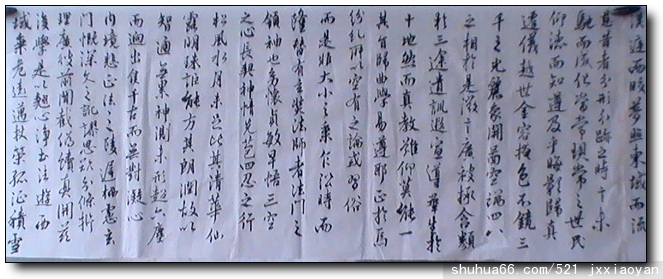 漢庭而皎夢照東域而流
慈昔者分形分跡之時言未
馳而成化當常現常之世民
仰德而知遵及乎晦影歸真
遷儀越世金容掩色不鏡三
千之光麗象開圖空端四八
之相於是微言廣被拯含類
於三途遺訓遐宣導群生於
十地然而真教難仰莫能一
其旨歸曲學易遵邪正於焉
紛糾所以空有之論或習俗
而是非大小之乘乍沿時而
隆替有玄奘法師者法門之
領袖也幼懷貞敏早悟三空
之心長契神情先苞四忍之行
松風水月未足比其清華仙
露明珠詎能方其朗潤故以
智通無累神測未形超六塵
而迥出隻千古而無對凝心
內境悲正法之陵遲栖慮玄
門慨深文之訛謬思欲分條析
理廣彼前聞截偽續真開茲
後學是以翹心淨土法遊西
域乘危遠邁杖策孤征積雪
shuhua66.com/521 jxxiaoyan